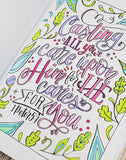 Casting
ALL your
care upon
Him FOR HE
cares
FOR You